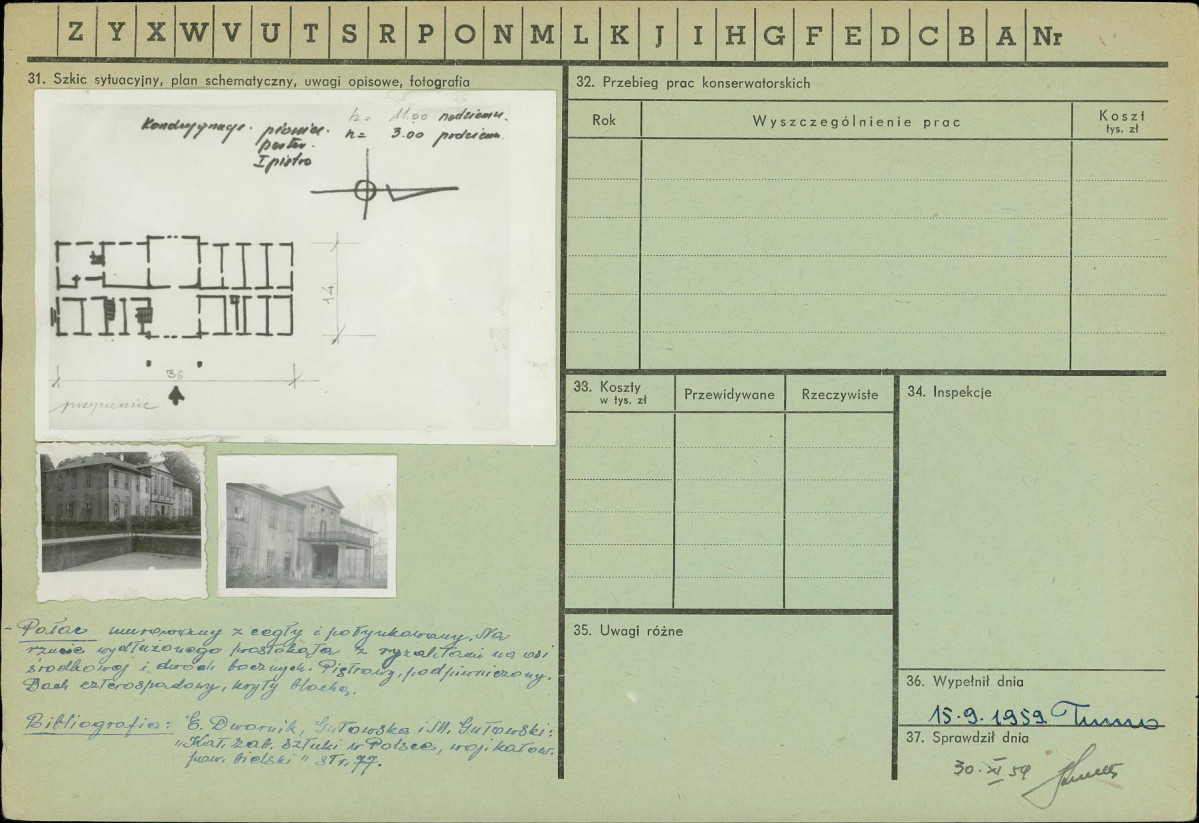 Z Y X W V U T S R P O N M L K J I H G F E D C B A Nr
31. Szkic sytuacyjny, plan schematyczny, uwagi opisowe, fotografia
Kondygnacje. piwnice. h= 11.00 nadziem.
parter. h= 3.00 podziem.
I piętro
14
36
przyziemie
- Pałac murowany z cegły i potynkowany. Na
rzucie wydłużonego prostokąta z ryzalitami na osi
środkowej i dwoch bocznych. Piętrowy, podpiwniczony.
Dach czterospadowy, kryty blachą.
Bibliografia: E. Dwornik, Gutowska i M. Gutowski:
"Kat. zab. sztuki w Polsce, woj. katow.
pow. bielski" str. 77.
32. Przebieg prac konserwatorskich
Rok
Wyszczególnienie prac
Koszt
tys. zł
33. Koszty
w tys. zł
Przewidywane
Rzeczywiste
34. Inspekcje
35. Uwagi różne
36. Wypełnił dnia
15.9.1959
37. Sprawdził dnia
30. XI 59